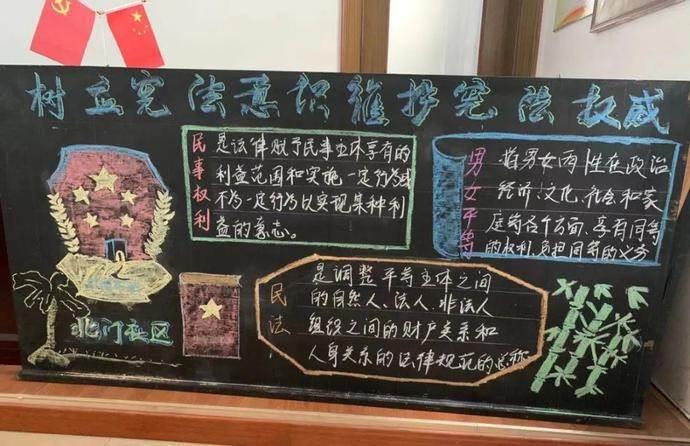 树立宪法意识維护宪法权威
民事权利
是法律赋予民事主体享有的
利益范围和实施一定行为或
不为一定行为以实现某种利
益的意志。
男女平等
指男女两性在政治
经济、文化、社会和家
庭的各个方面、享有同等
的权利,负担同等的义务
民法
是调整平等主体之间
的自然人、法人、非法人
组织之间的财产关系和
人身关系的法律规范的总称
北门社区